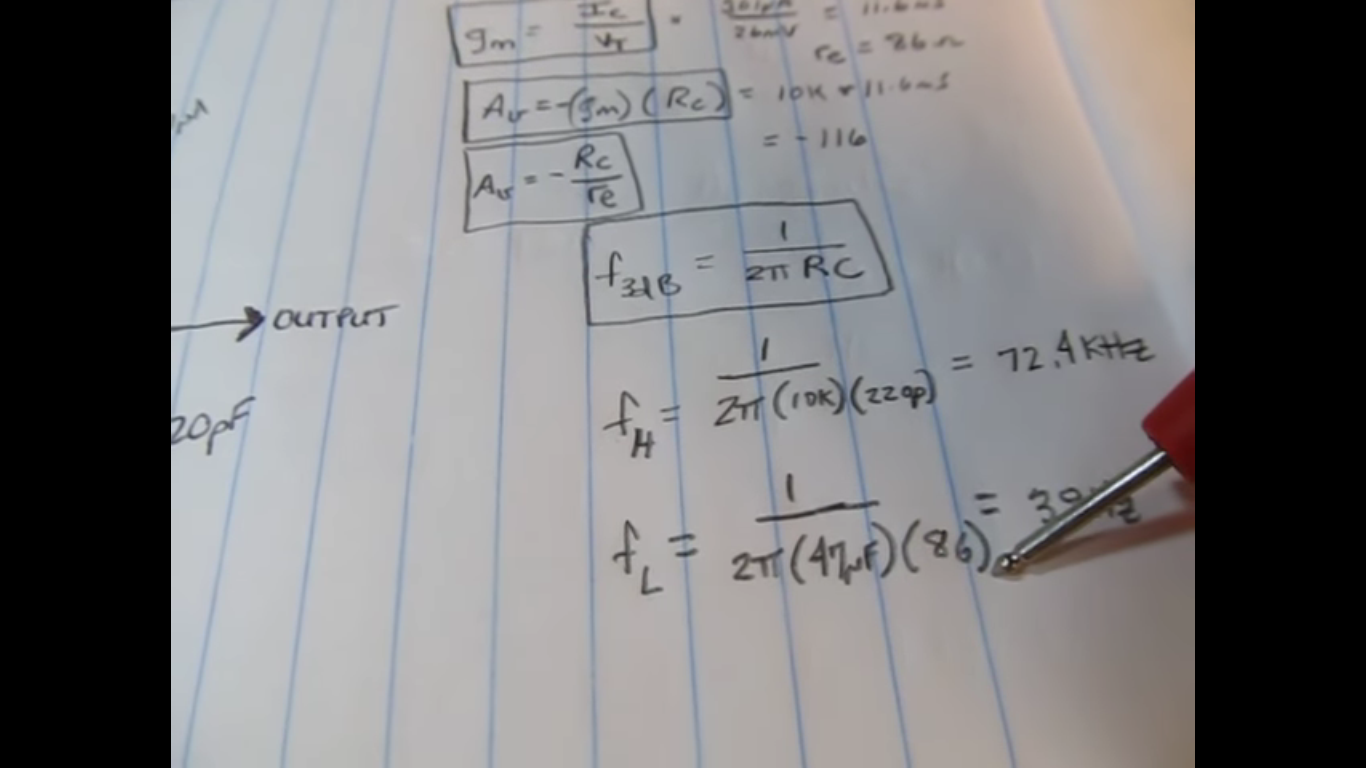 gm = Ic / VT = 301µA / 26mV = 11.6mS
re = 86 Ω
Av = -(gm) (Rc) = 10K * 11.6mS
= -116
Av = - Rc / re
f3dB = 1 / 2π RC
OUTPUT
fH = 1 / 2π (10K)(220p) = 72.4KHz
20pF
fL = 1 / 2π (47µF)(86) = 39Hz